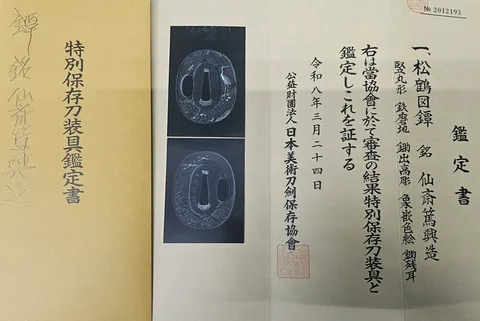 № 2012193
鑑定書
一、松鶴図鐔 銘 仙斎篤興造
竪丸形 鉄磨地 鋤出高彫 象嵌色絵 鋤残耳
右は當協會に於て審査の結果特別保存刀装具と
鑑定しこれを証する
令和八年三月二十四日
公益財團法人 日本美術刀劍保存協會
特別保存刀装具鑑定書
鐔 銘 仙斎篤興造